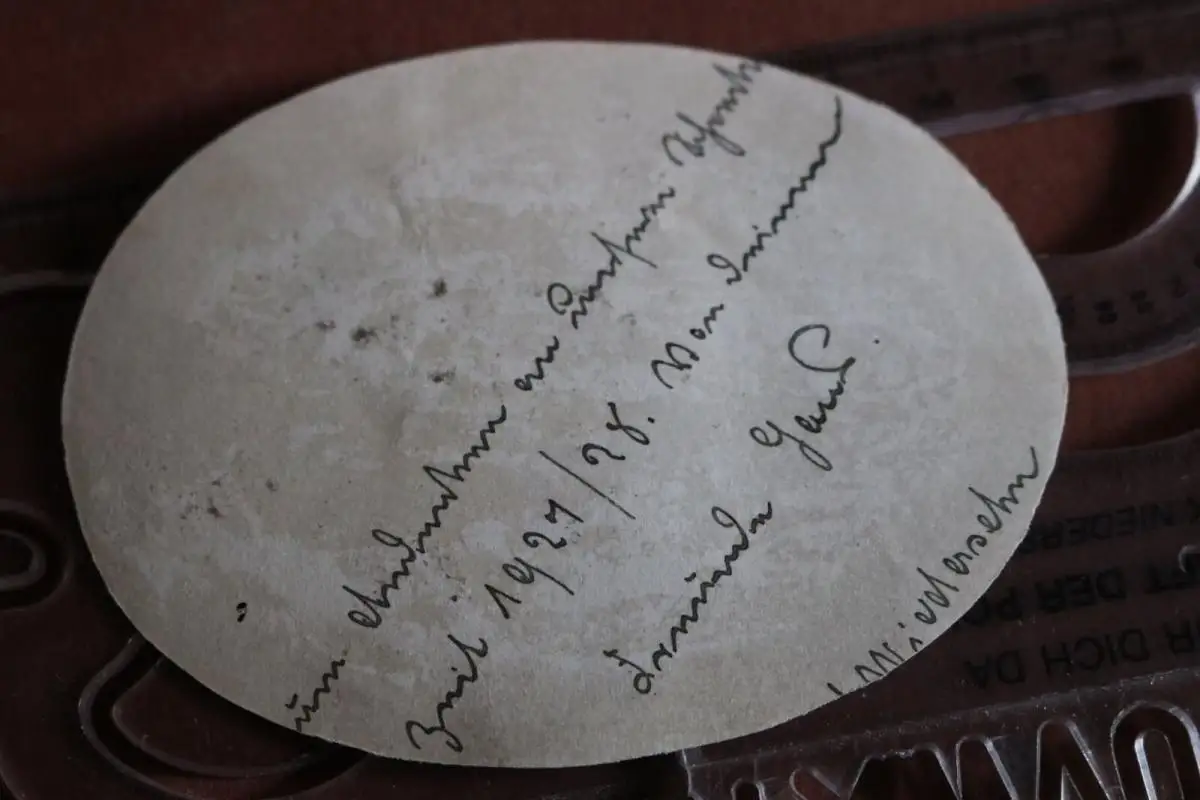 um Andenken an unsere
Zeit 1927/28. Von Deinem
Freunde
Wiedersehn
NIEDERS
FT DER PO
R DICH DA